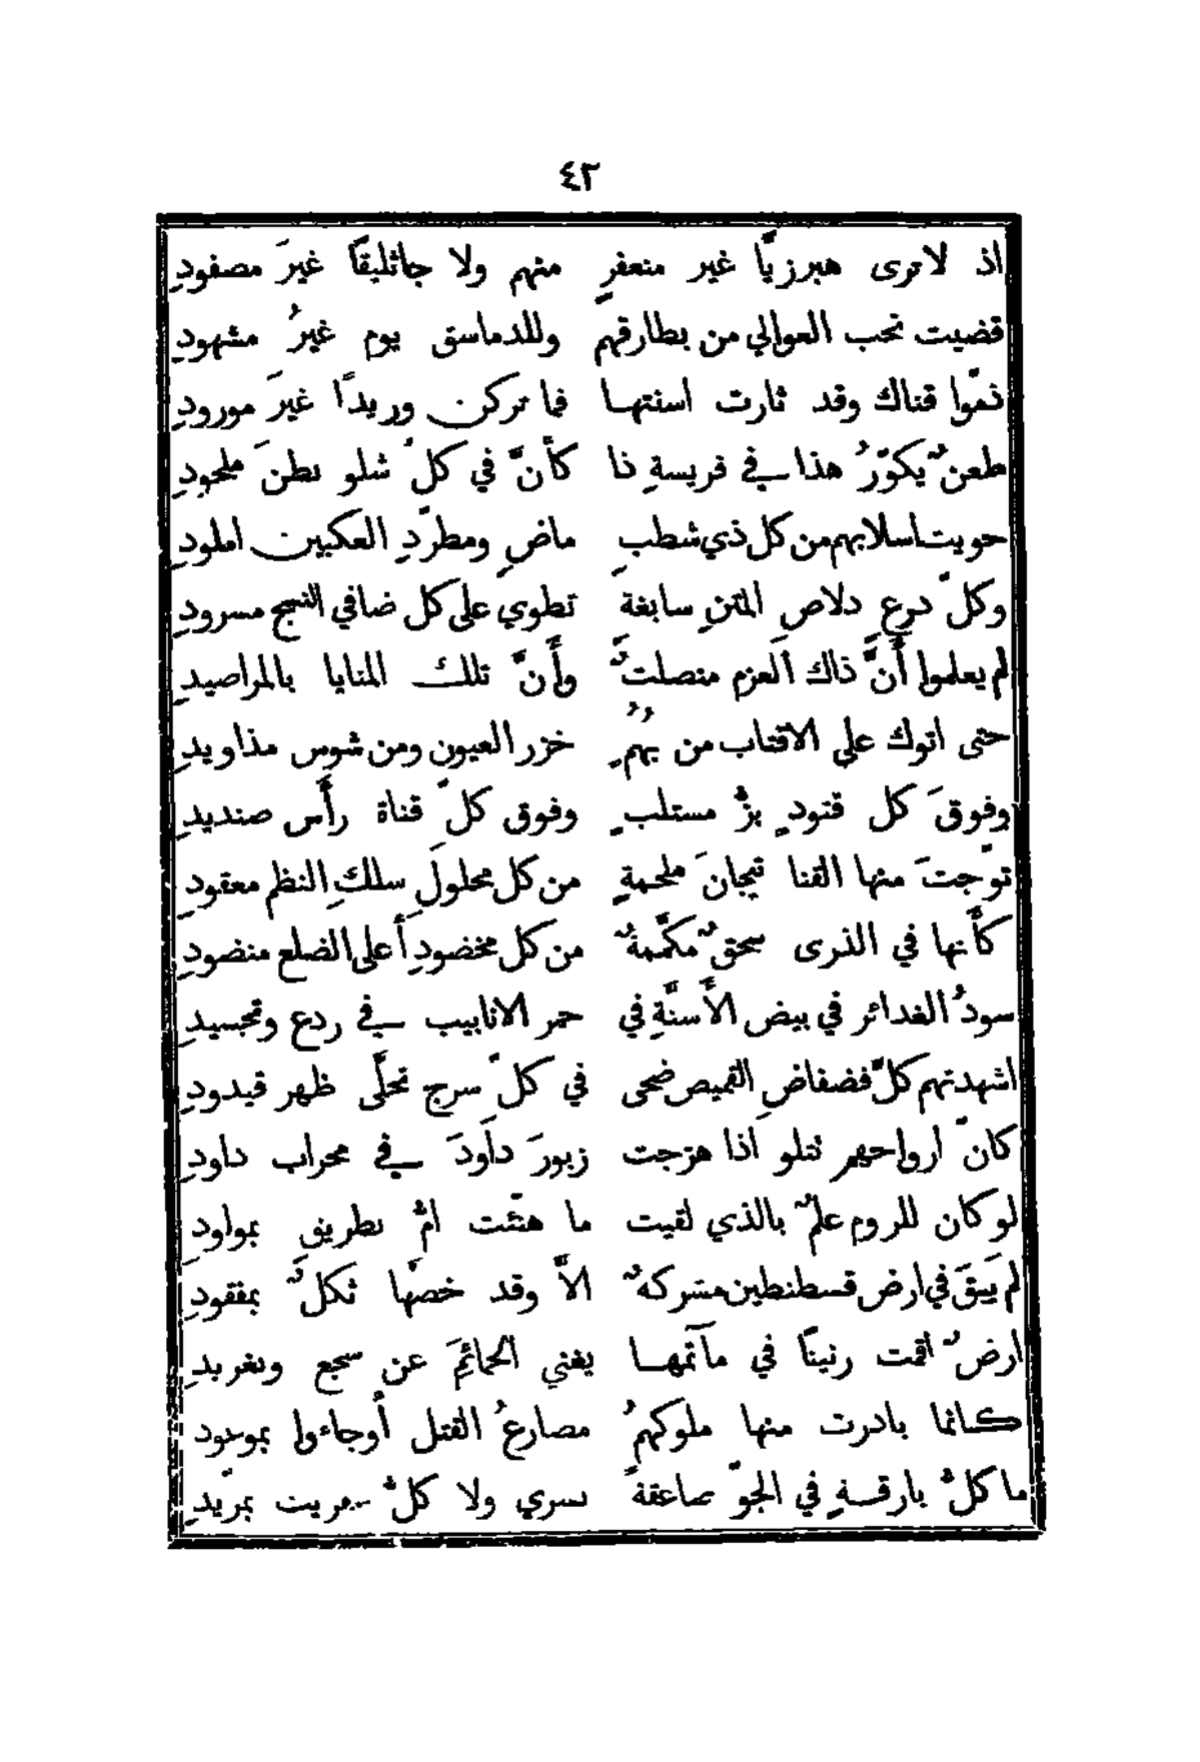 ٤٢
اذ لا ترى هبرزيًّا غير منعفرٍ منهم ولا جاثليقًا غيرَ مصفودِ
قضيت نحب العوالي من بطارقهم وللدماسق يوم غيرُ مشهودِ
ذمّوا قناك وقد ثارت اسنتها فما تركن وريدًا غيرَ مورودِ
طعنٌ يكوّرُ هذا في فريسةِ ذا كأنَّ في كلّ شلو بطنَ ملحودِ
حويت اسلابهم من كل ذي شطبٍ ماضٍ ومطرّدِ العكبين املودِ
وكلّ درعٍ دلاصِ المتنِ سابغةَ تطوي على كل ضافي النسج مسرودِ
لم يعلموا أَنَّ ذاك العزم منصلتٌ وأَنَّ تلك المنايا بالمراصيدِ
حتى اتوك على الاقتاب من بهُمٍ خزر العيون ومن شوس مذاويدِ
وفوقَ كل قتودٍ بزٌّ مستلبٍ وفوق كلّ قناة رأَس صنديدِ
توّجتَ منها القنا تيجانَ ملحمةٍ من كل محلولِ سلكِ النظم معقودِ
كأَنها في الذرى سحقٌ مكمَّمةٌ من كل مخضودِ أَعلى الضلع منضودِ
سودُ الغدائر في بيض الأَسنَّةِ في حمر الانابيب في ردع وتجسيدِ
اشهدتهم كلَّ فضفاضِ القميص ضحى في كلّ سرج تحلَّى ظهر قيدودِ
كانّ ارواحهم تتلو اذا هزجت زبورَ داَودَ في محراب داودِ
لو كان للروم علمٌ بالذي لقيت ما هنّئت امُّ بطريق بمولودِ
لم يَبقَ في ارض قسطنطين مشركةٌ الاَّ وقد خصَّها ثكلٌ بمفقودِ
ارضٌ اقمت رنينًا في مآتمها يغني الحمائمَ عن سجع وتغريدِ
كانما بادرت منها ملوكهمُ مصارعُ القتل أوجاءوا بموعود
ما كلُّ بارقةٍ في الجوّ صاعقةً تسري ولا كلُّ عفريت بمرّيدِ